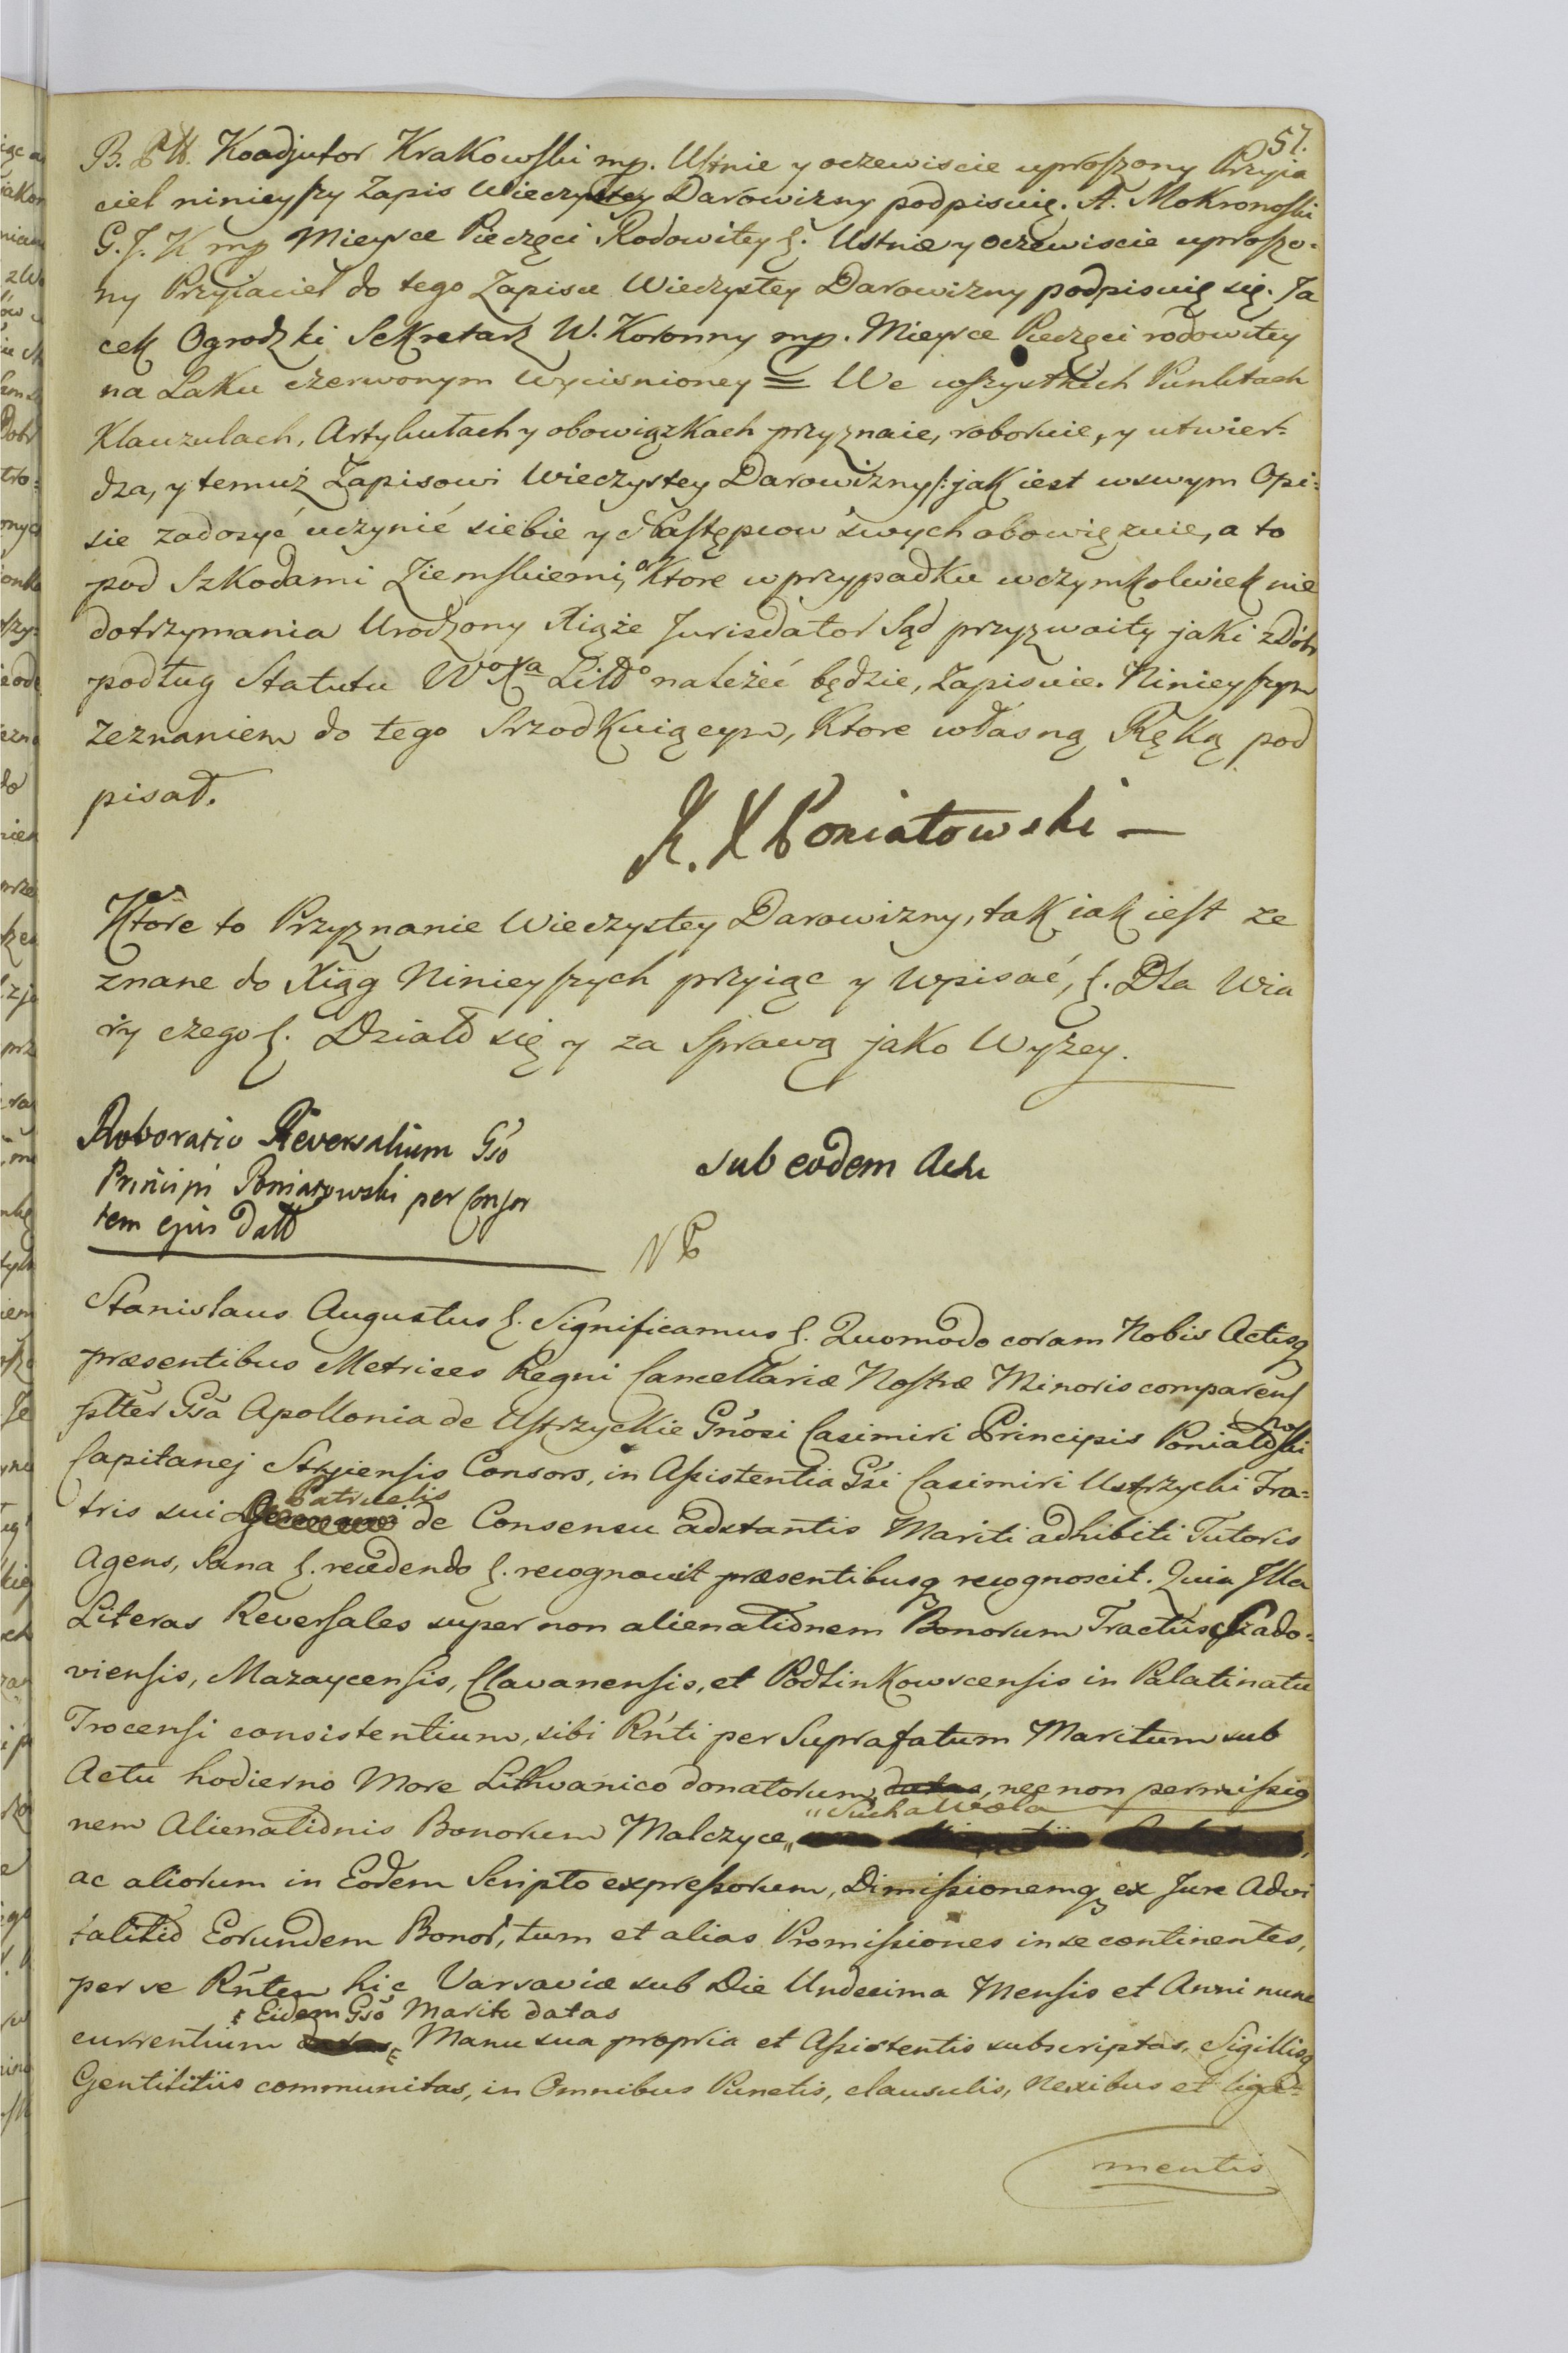 57.
B. P W. Koadjutor Krakowski mp. Ustnie y oczewiscie uproszony Przyia
ciel ninieyszy Zapis Wieczystey Darowizny podpisuię. A. Mokronoski
G. J. K mp Mieysce Pieczęci Rodowitey §. Ustnie y oczewiscie uproszo-
ny Przyiaciel do tego Zapisu Wieczystey Darowizny podpisuię się. Ja
cek Ogrodzki Sekretarz W. Koronny mp. Mieysce Pieczęci rodowitey
na Laku czerwonym wycisnioney = We wszystkich Punktach
Klauzulach, Artykułach y obowiązkach przyznaie, roboruie, y utwier-
dza, y temuż Zapisowi Wieczystey Darowizny /: jak iest wswym Opi:
sie zadosyć uczynić siebie y Następcow swych obowięzuie, a to
pod Szkodami Ziemskiemi, o Ktore wprzypadku wczymkolwiek nie
dotrzymania Urodzony Xiąże Jurisdator Sąd przyzwoity jaki z Dóbr
podług Statutu Wo Xa Litto należéć będzie, Zapisuie. Ninieyszym
Zeznaniem do tego Srzodkuiącym, Ktore własną Ręką pod
pisał.
K. X Poniatowski —
Ktore to Przyznanie Wieczystey Darowizny, tak iak iest ze
znane do Xiąg Ninieyszych przyiąc y Wpisać, §. Dla Wia
ry czego §. Działo się y za Sprawą jako Wyżey.
Roboratio Reversalium Gso
Principi Poniatowski per Consor
tem ejus datt
sub eodem Actu
N P
Stanislaus Augustus §. Significamus §. Quomodo coram Nobis Actisq
præsentibus Metrices Regni Cancellariæ Nostræ Minoris comparens
pltter Gsa Apollonia de Ustrzyckie Gnosi Casimiri Principis Poniatowski
Capitanej Stryiensis Consors, in Assistentia Gsi Casimiri Ustrzycki Fra=
tris sui Patruelis de Consensu adstantis Mariti adhibiti Tutoris
Agens, Sana §. recedendo §. recognovit præsentibusq recognoscit. Quia Illa
Literas Reversales super non alienationem Bonorum Tractus Szado-
viensis, Mazaycensis, Clavanensis, et Podlinkowscensis in Palatinatu
Trocensi consistentium, sibi Rnti per Suprafatum Maritum sub
Actu hodierno More Lithvanico donatorum, datas, nec non permissio
nem Alienationis Bonorum Malczyce, „Sucha Wola
ac aliorum in Eodem Scripto expressorum, Dimissionemq ex Jure Advi
talitio Eorundem Bonor, tum et alias Promissiones in se continentes,
per se Rntem hic Varsaviæ sub Die Undecima Mensis et Anni nunc
Eidem Gso Marito datas
currentium datas Manu sua propria et Assistentis subscriptas, Sigillisq
Gentilitiis communitas, in Omnibus Punctis, clausulis, Nexibus et liga-
mentis